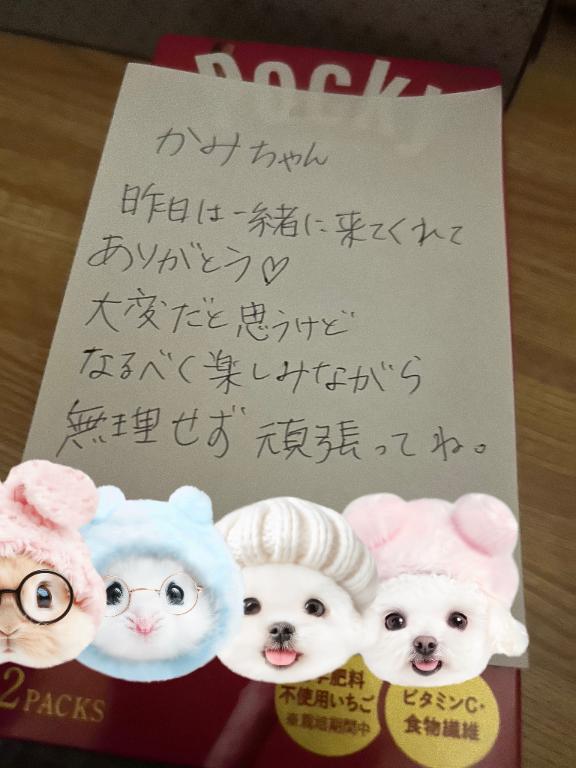 Pocky
かみちゃん
昨日は一緒に来てくれて
ありがとう♡
大変だと思うけど
なるべく楽しみながら
無理せず頑張ってね。
2 PACKS
肥料
不使用いちご
※栽培期間中
ビタミンC・
食物繊維